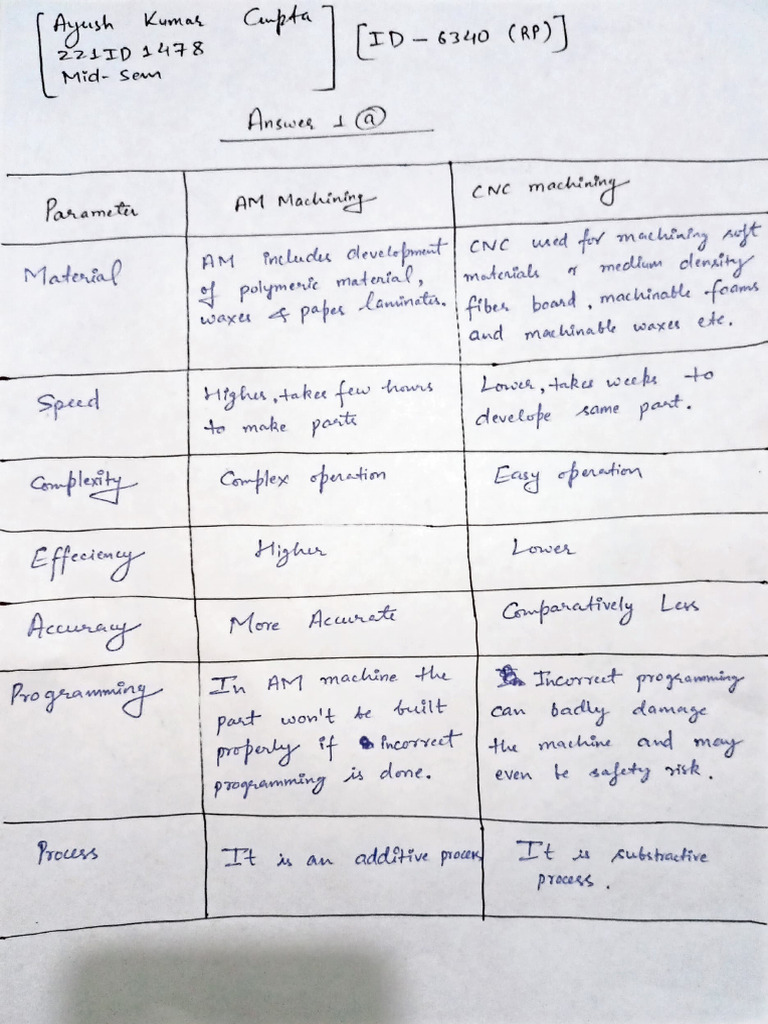 Ayush Kumar Gupta
221ID1478
Mid-Sem
[ID - 6340 (RP)]
Answer 1 (a)
Parameter
AM Machining
CNC machining
Material
AM includes development
of polymeric material,
waxes & paper laminates.
CNC used for machining soft
materials or medium density
fiber board, machinable foams
and machinable waxes etc.
Speed
Higher, takes few hours
to make parts
Lower, takes weeks to
develope same part.
Complexity
Complex operation
Easy operation
Effeciency
Higher
Lower
Accuracy
More Accurate
Comparatively Less
Programming
In AM machine the
part won't be built
properly if incorrect
programming is done.
Incorrect programming
can badly damage
the machine and may
even be safety risk.
Process
It is an additive process
It is substractive
process.